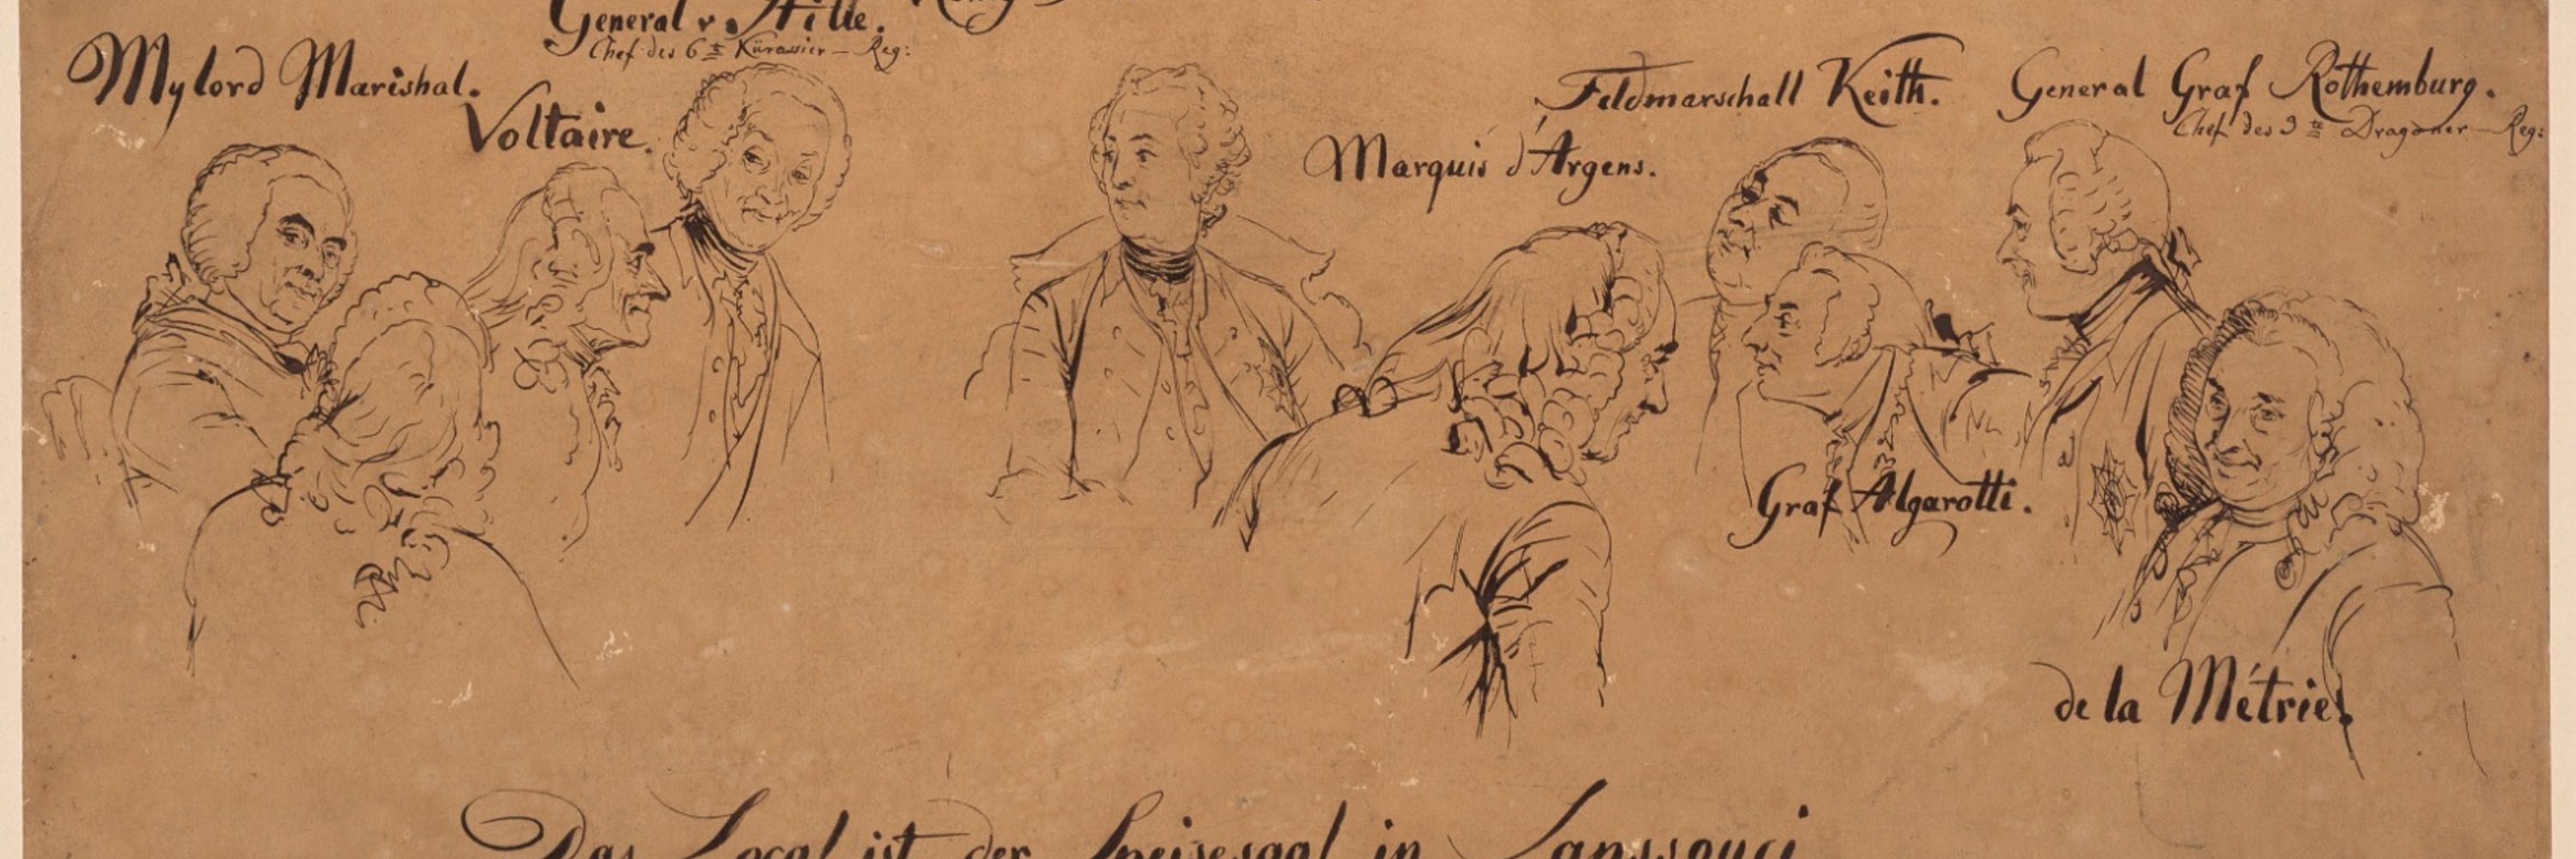 General v. Stille.
Chef des 6te Kürassier — Reg:
König
Mylord Marishal.
Voltaire.
Feldmarschall Keith.
General Graf Rothemburg.
Chef des 3te Dragoner — Reg:
Marquis d'Argens.
Graf Algarotti.
de la Métrie.
Das Local ist der Speisesaal in Sanssouci